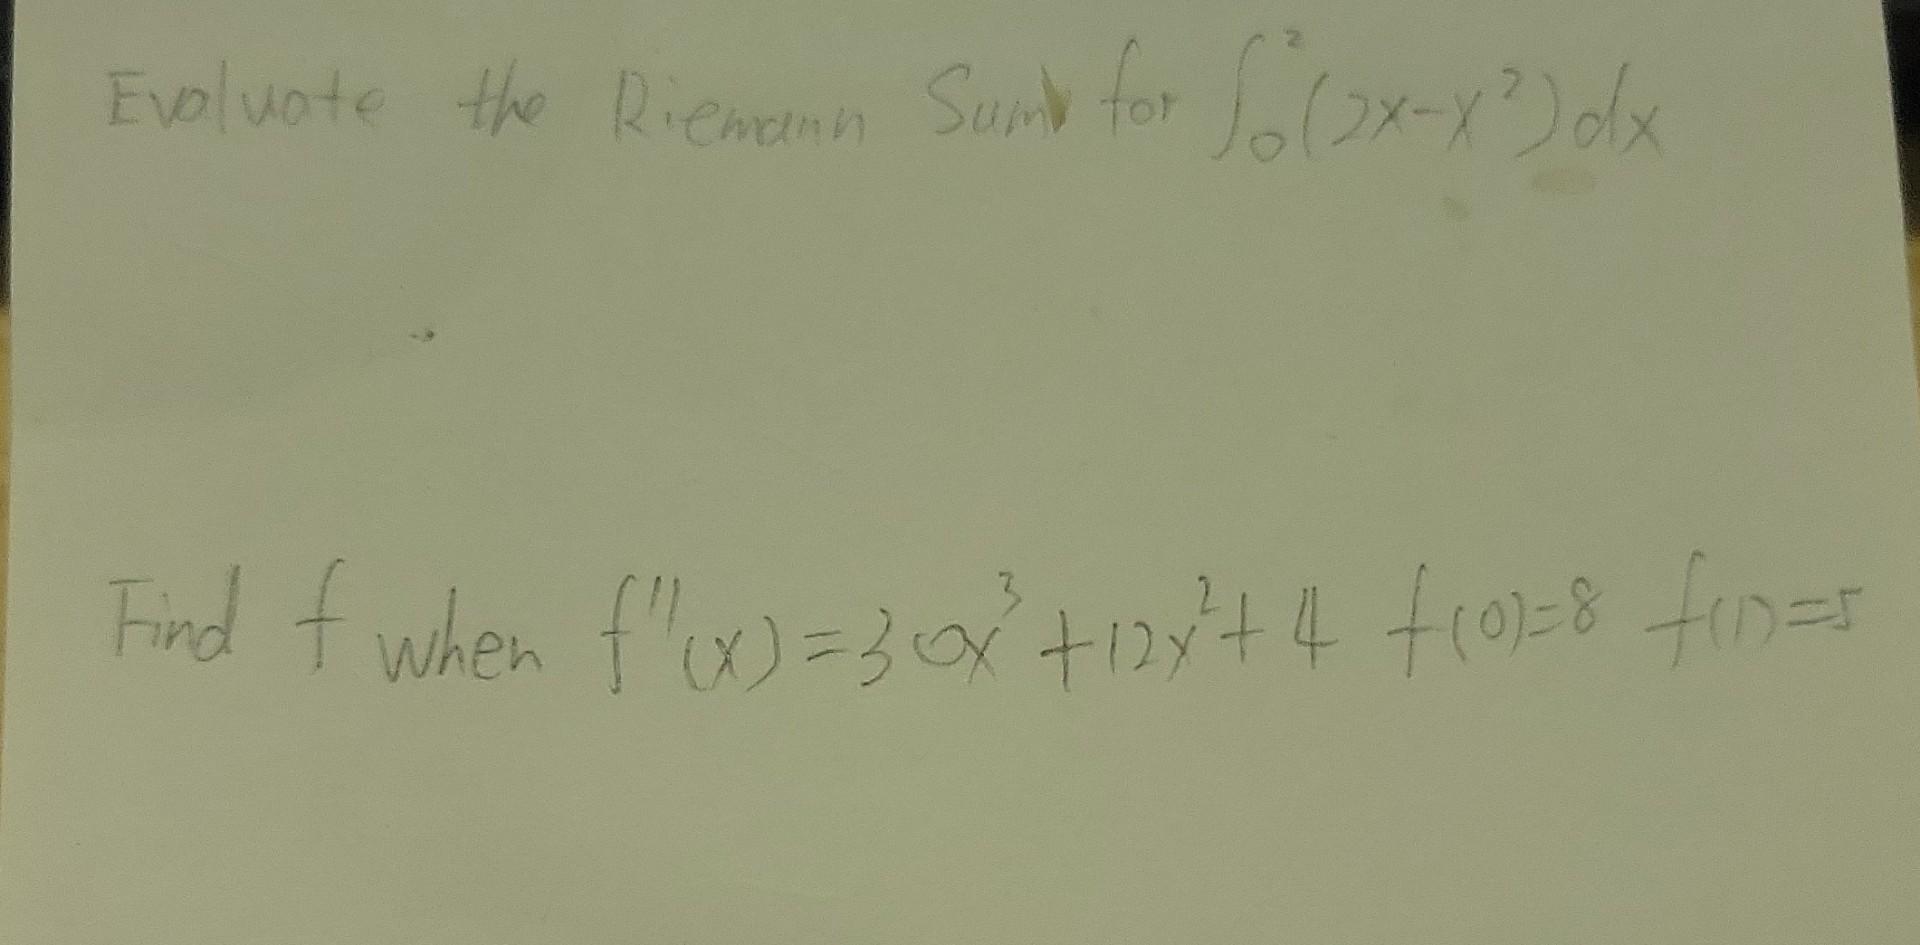 Evaluate the Riemann Sum for ∫₀²(2x-x²)dx
Find f when f''(x)=30x³+12x²+4 f(0)=8 f(1)=5